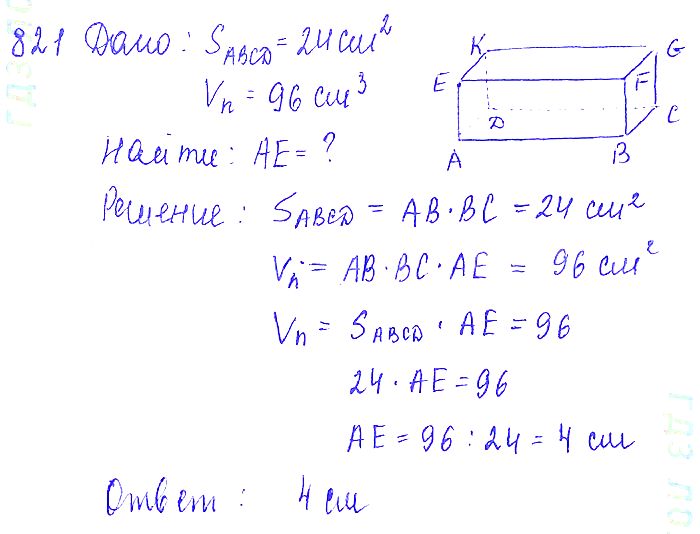 821 Дано: S_ABCD = 24 см²
Vп = 96 см³
Найти: AE = ?
K G
E F
D C
A B
Решение: S_ABCD = AB · BC = 24 см²
Vп = AB · BC · AE = 96 см²
Vп = S_ABCD · AE = 96
24 · AE = 96
AE = 96 : 24 = 4 см
Ответ: 4 см
ГДЗ ПО